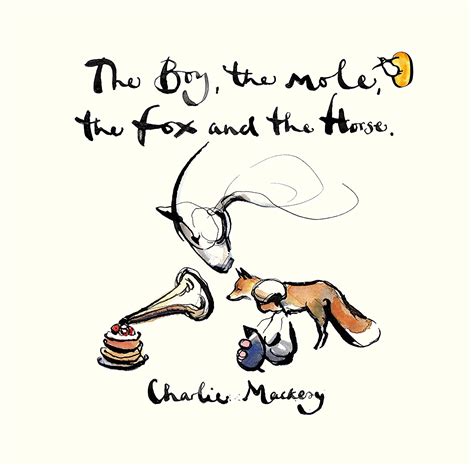 The Boy, the mole,
the fox and the Horse.
Charlie Mackesy